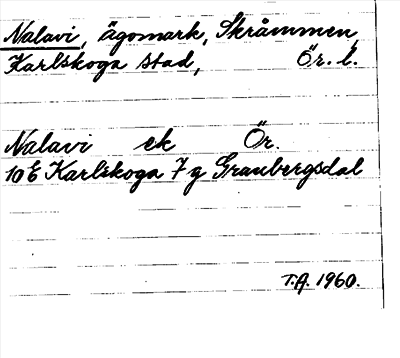 Nalavi, ägomark, Skråmmen,
Karlskoga stad, Ör. l.
Nalavi ek Ör.
10E Karlskoga 7g Granbergsdal
T.A. 1960.